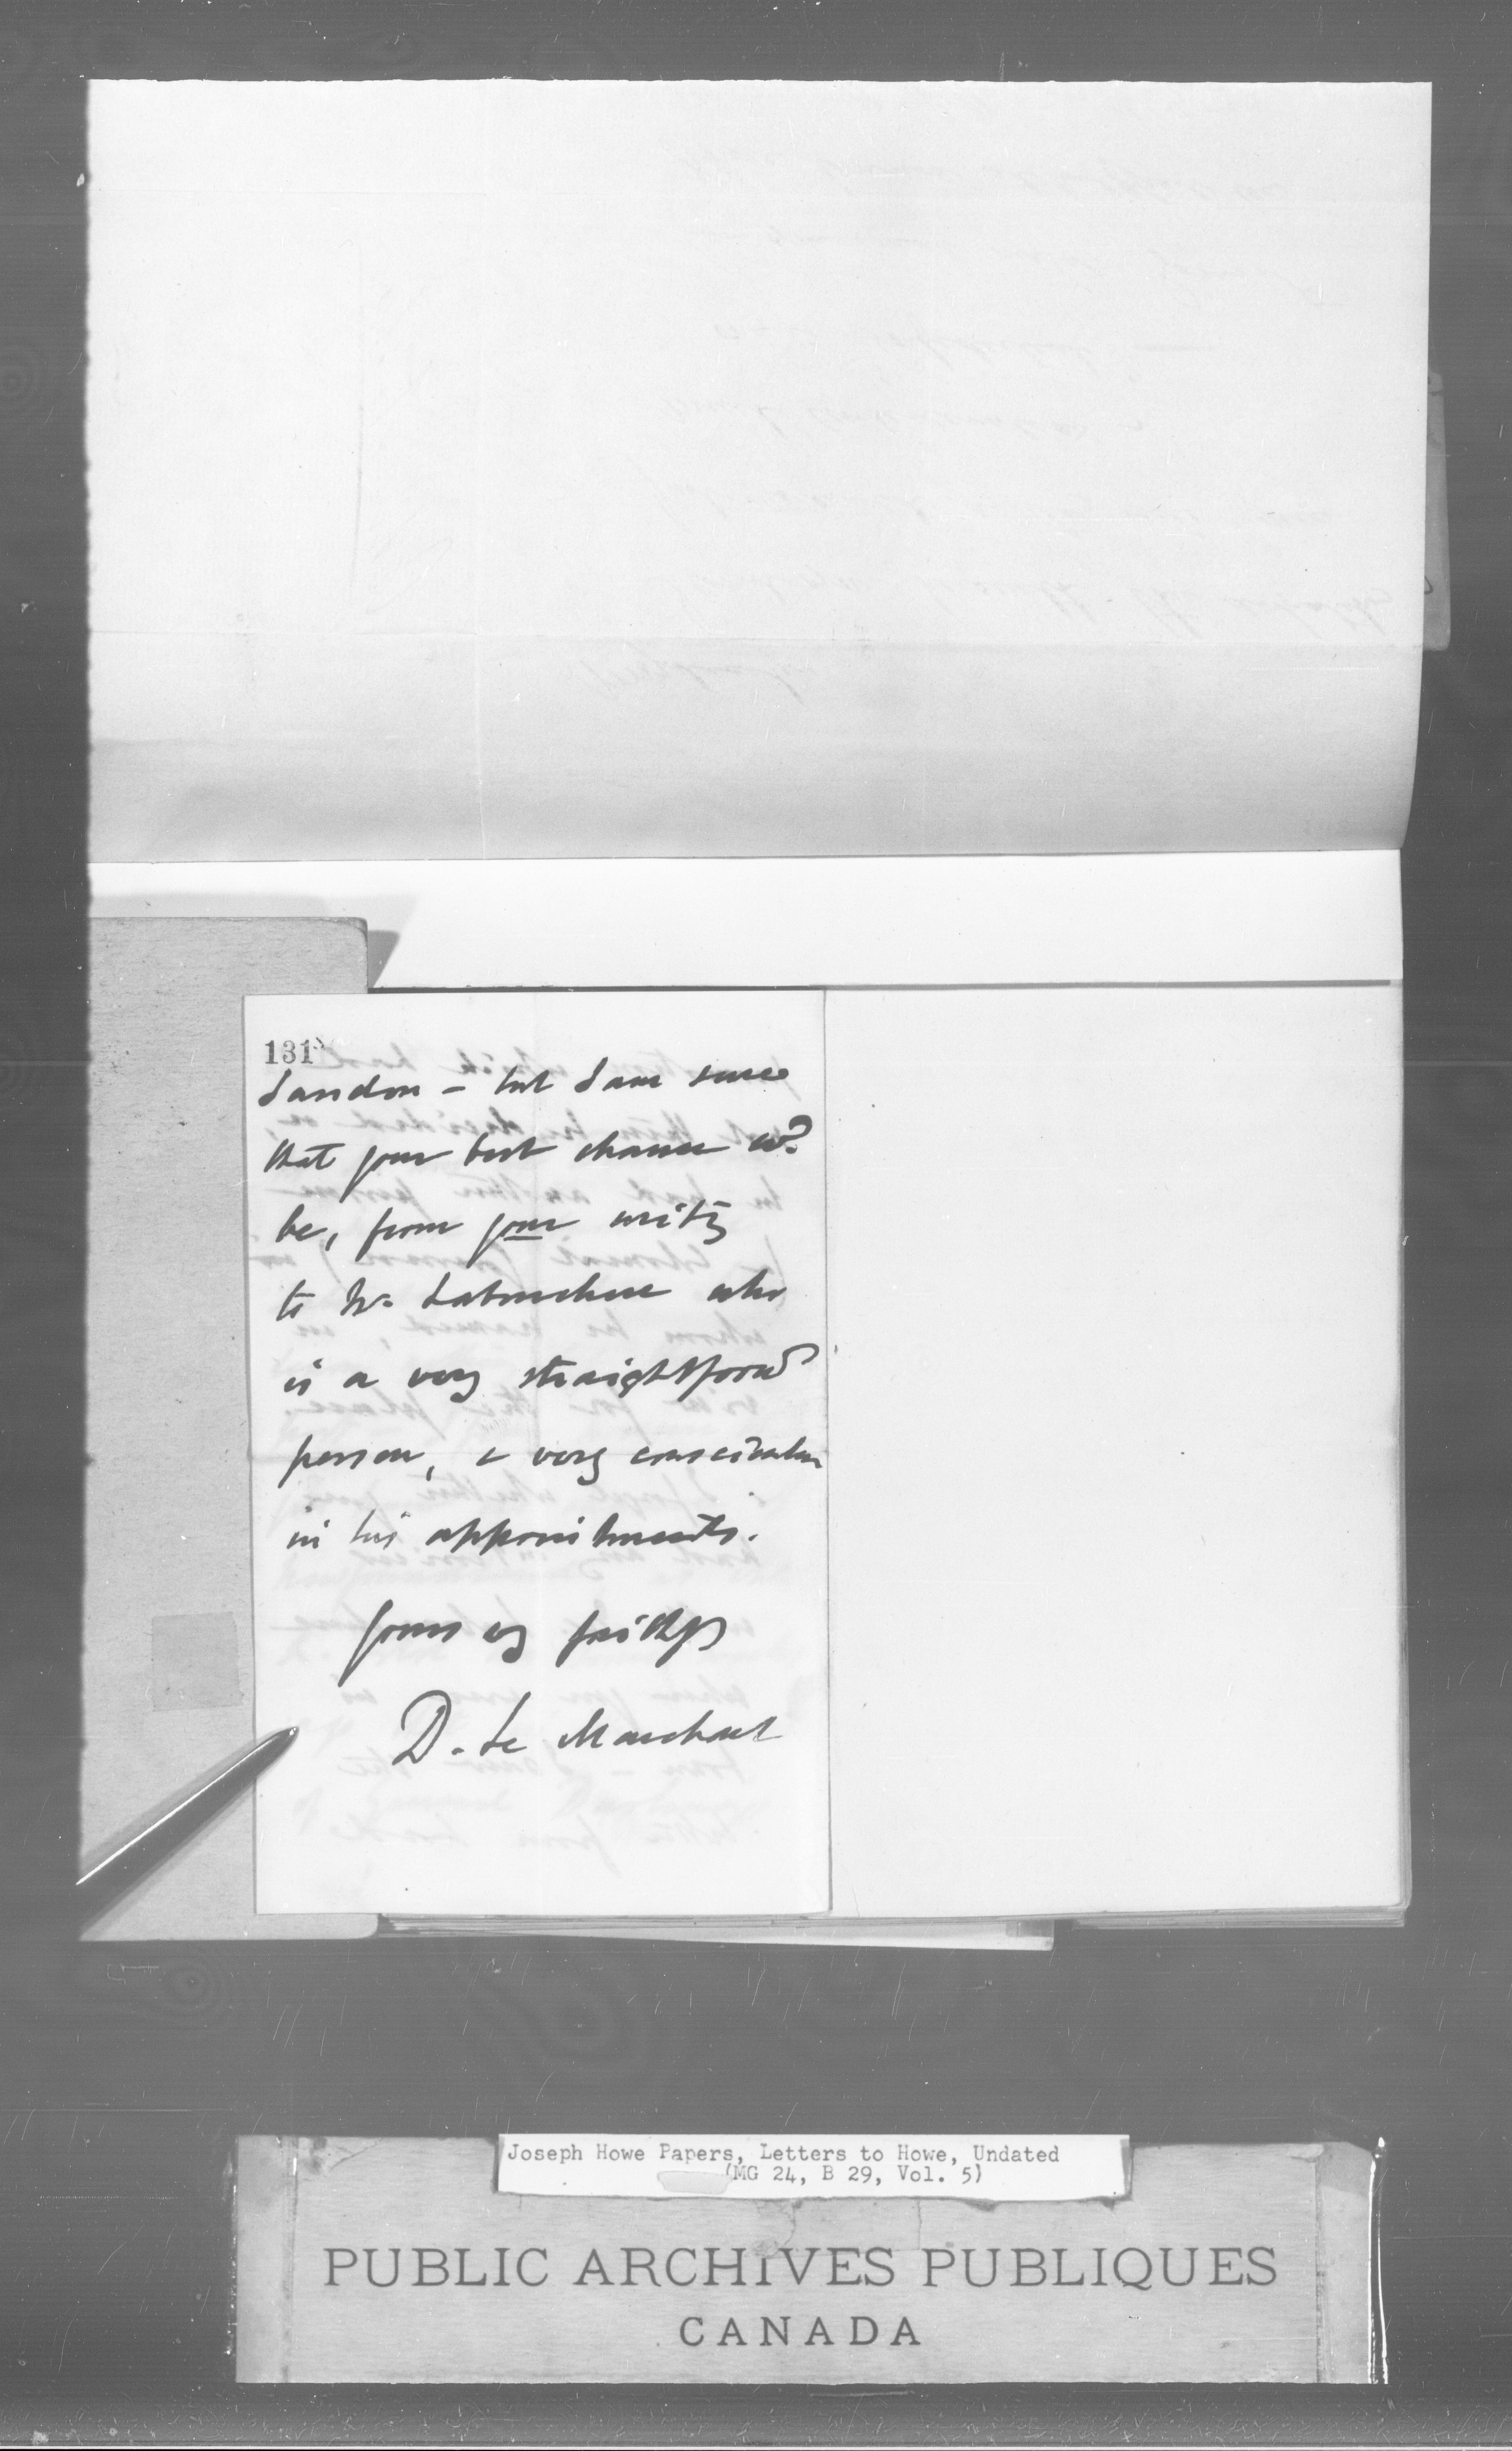 131
London - but I am sure
that your best chance wd
be, from your writg
to Mr Labouchere who
is a very straightforwd
person, & very conscientious
in his appointments.
Yours vy faithfy
D. Le Marchant
Joseph Howe Papers, Letters to Howe, Undated
(MG 24, B 29, Vol. 5)
PUBLIC ARCHIVES PUBLIQUES
CANADA